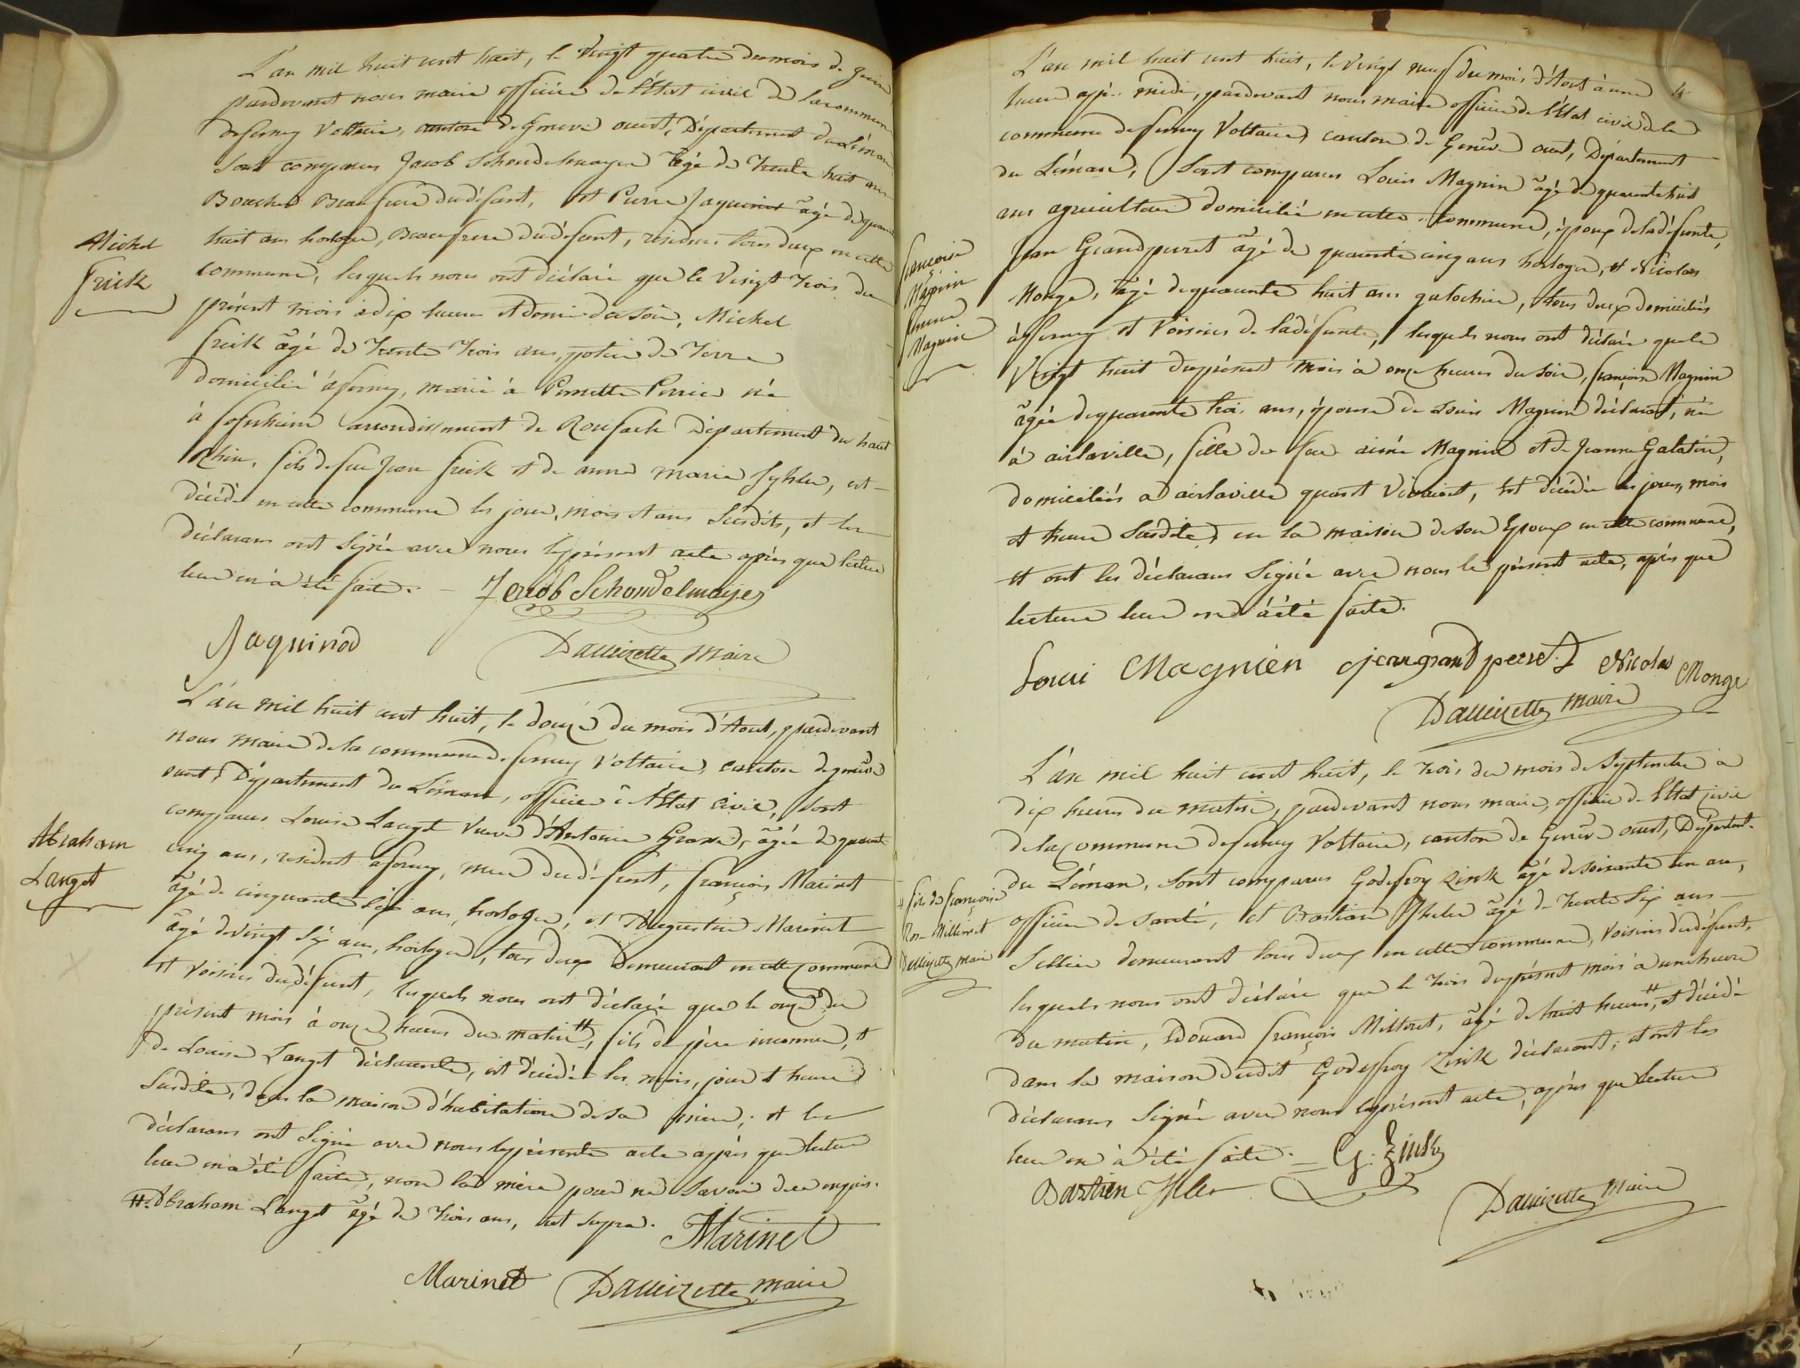 L'an mil huit cent huit, le vingt quatre du mois de
pardevant nous maire officier de l'état civil de la commune
de ferney Voltaire, canton de Geneve ouest, Département du Léman
sont comparus Jacob Schondelmayer âgé de trente huit ans
Boucher Beaufrere du défunt, et Pierre Jaquinot âgé de
huit ans horloger, Beaufrere du défunt, résidens tous deux en cette
commune, lesquels nous ont déclaré que le Vingt trois du
présent mois à dix heures et demie du soir, Michel
Frick âgé de trente trois ans, potier de terre
domicilié à ferney, marié à Pernette Perrier né
à arrondissement de Roufach Département du haut
Rhin, fils de feu Jean Frick et de anne marie, est
décédé en cette commune les jour, mois et ans susdits, et les
déclarans ont signé avec nous le présent acte après que lecture
leur en a été faite. Jacob Schondelmayer
Jaquinod Dauvizette maire
Michel
Frick
L'an mil huit cent huit, le douze du mois d'Aout, pardevant
nous maire de la commune de ferney Voltaire, canton de genève
ouest, Département du Léman, officier de l'Etat civil, sont
comparus Louise Langet veuve d'Antoine, âgée de quarante
cinq ans, résident à ferney, mere du défunt, françois Marinet
âgé de cinquante six ans, horloger, et Augustin Marinet
âgé de vingt six ans, horloger, tous deux demeurant en cette commune
et voisins du défunt, lesquels nous ont déclaré que le onze du
présent mois à onze heures du matin #, fils de père inconnu, et
de Louise Langet déclarante, est décédé les mois, jour et heure
susdite, dans la maison d'habitation de sa mère; et les
déclarans ont signé avec nous le présent acte après que lecture
leur en a été faite, non la mère pour ne savoir de ce enquis.
# Abraham Langet âgé de trois ans, ut supra. Marinet
Marinet Dauvizette maire
Abraham
Langet
L'an mil huit cent huit, le vingt neuf du mois d'Aout à une
heure après midi, pardevant nous maire officier de l'Etat civil de la
commune de ferney Voltaire, canton de Genève ouest, Département
du Léman, sont comparus Louis Magnin âgé de quarante huit
ans agriculteur domicilié en cette commune, époux de la défunte,
Jean Grandperret âgé de quarante cinq ans horloger, et Nicolas
Monge, âgé de quarante huit ans, tous deux domiciliés
à ferney et voisins de la défunte, lesquels nous ont déclaré que le
Vingt huit du présent mois à onze heures du soir, françoise Magnin
âgée de quarante trois ans, épouse de Louis Magnin déclarant, née
à airlaville, fille de feu aimé Magnin et de Jeanne Galatin,
domiciliés à airlaville quant vivaient, est décédée les jour, mois
et heure susdite, en la maison de son Epoux en cette commune,
et ont les déclarans signé avec nous le présent acte, après que
lecture leur en a été faite.
Loui Magnien jean grand perret Nicolas Monge
Dauvizette maire
françoise
Magnin
femme
Magnin
L'an mil huit cent huit, le trois du mois de Septembre à
dix heures du matin, pardevant nous maire, officier de l'Etat civil
de la commune de ferney Voltaire, canton de Genève ouest, Départemt.
du Léman, sont comparus Godefroy Zink âgé de soixante un an,
officier de santé, et Bastian Isler âgé de trente six ans
Sellier demeurant tous deux en cette commune, voisins du défunt,
lesquels nous ont déclaré que le trois du présent mois à une heure
du matin, Edouard françois Milloret, âgé de huit heures #, est décédé
dans la maison dudit Godefroy Zink déclarant; et ont les
déclarans signé avec nous le présent acte, après que lecture
leur en a été faite. G. Zink
Bastien Isler
Dauvizette maire
# fils de françoise
Rose Milloret
Dauvizette maire